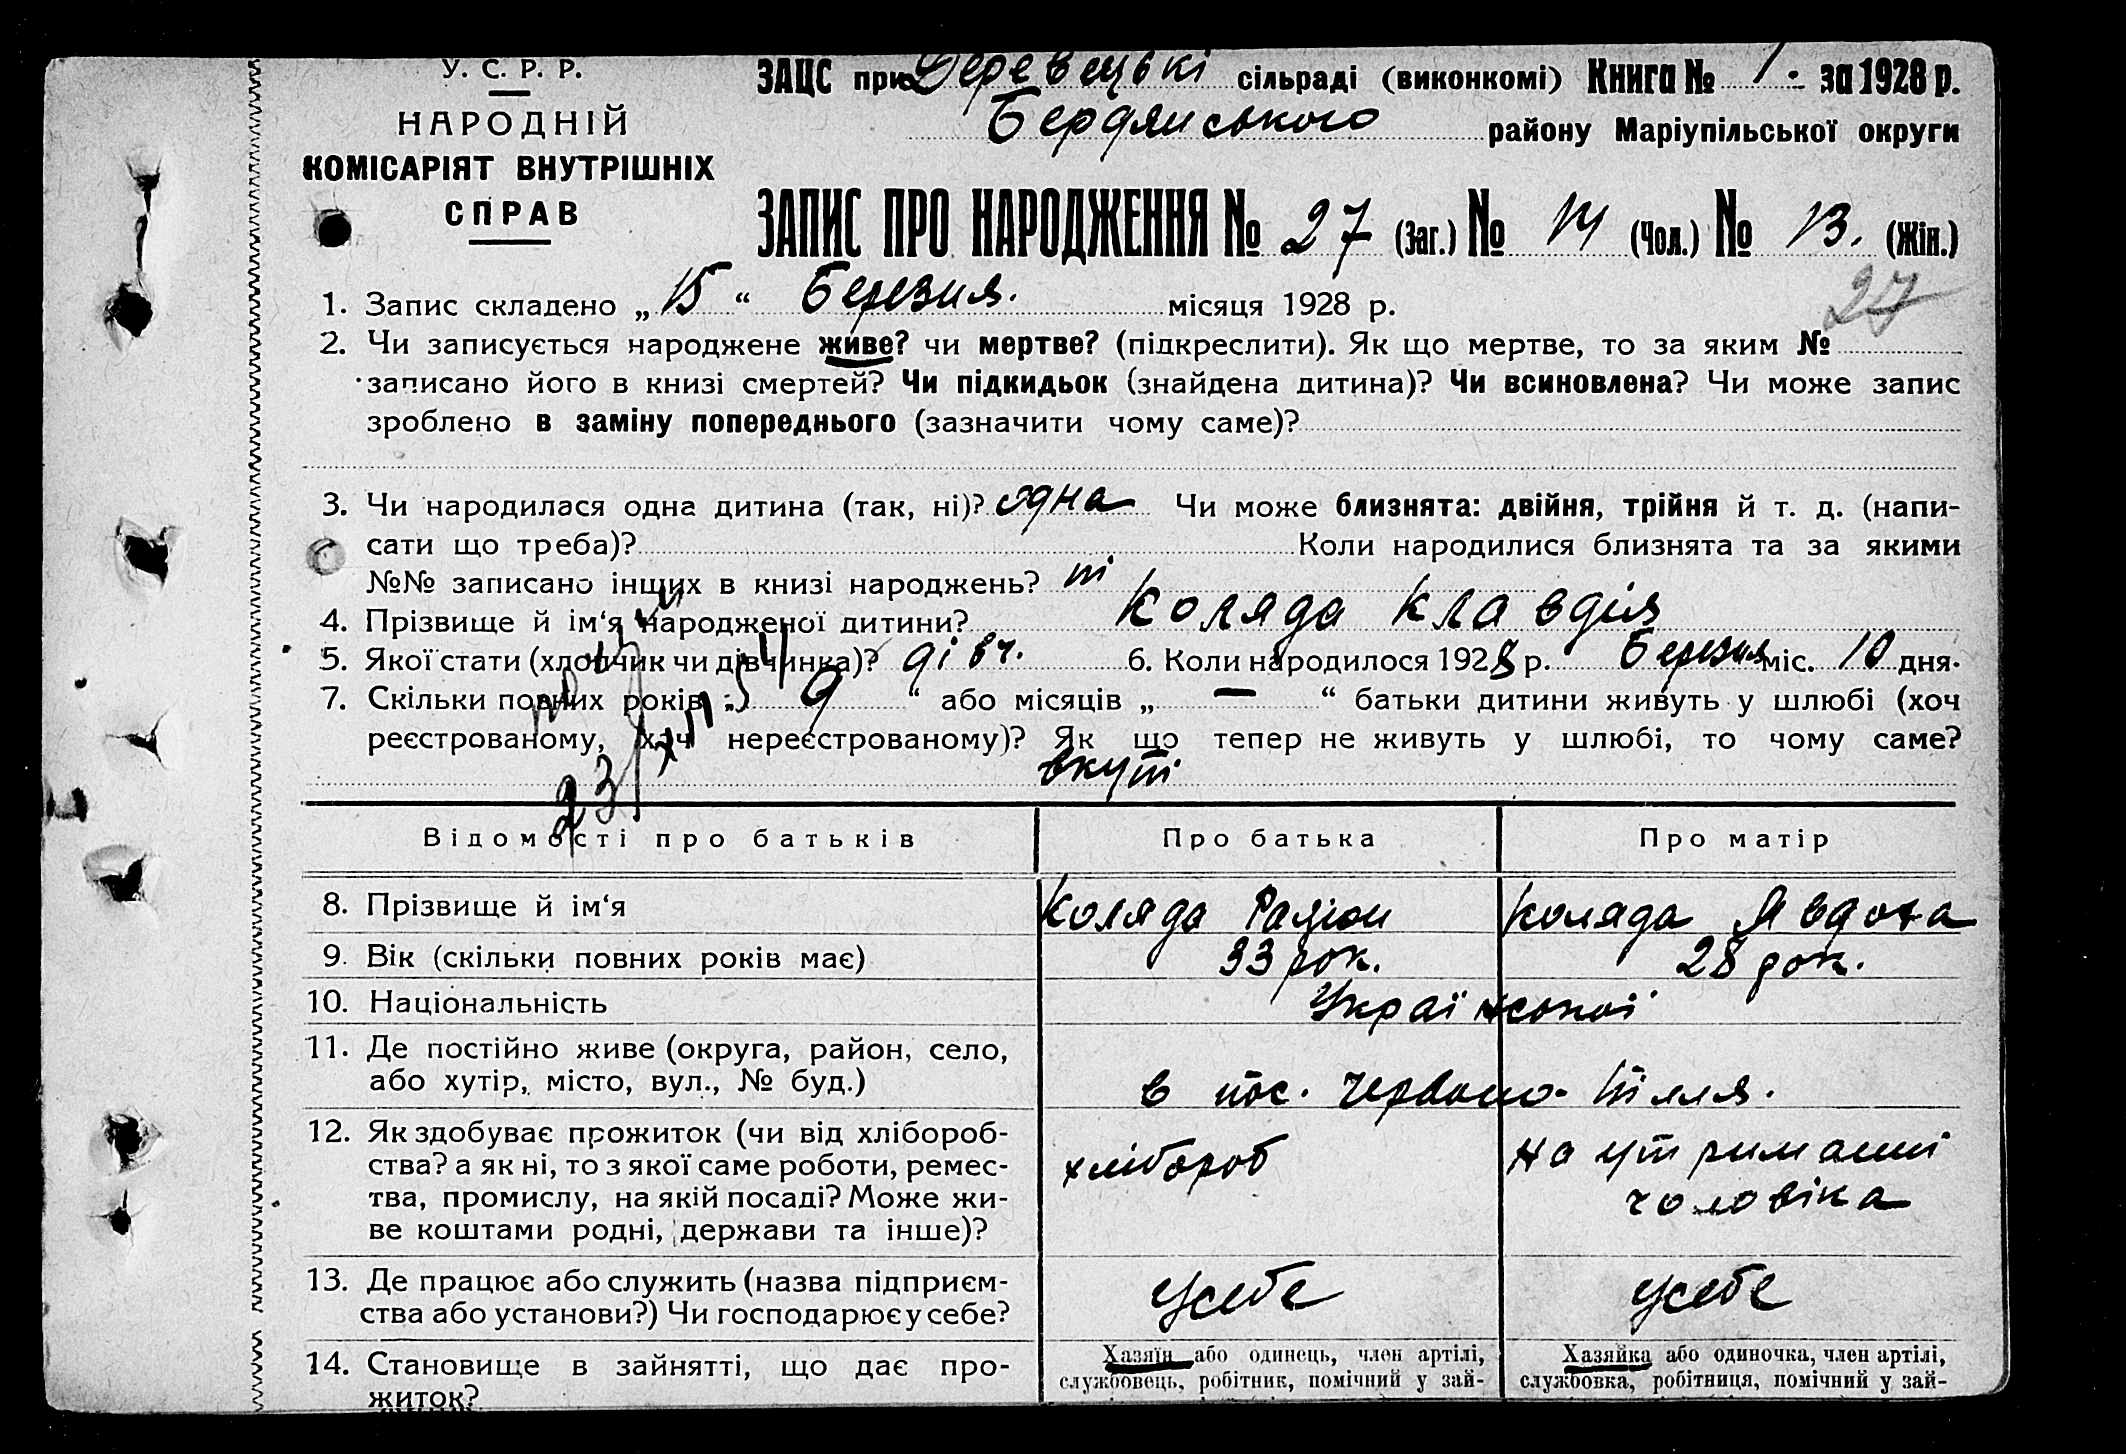 У. С. Р. Р.
НАРОДНІЙ
КОМІСАРІЯТ ВНУТРІШНІХ
СПРАВ
ЗАЦС при Деревецькі сільраді (виконкомі) Книга № 1. за 1928 р.
Бердянського району Маріупільської округи
ЗАПИС ПРО НАРОДЖЕННЯ № 27 (Заг.) № 14 (Чол.) № 13. (Жін.)
27
1. Запис складено „ 15 “ Березня. місяця 1928 р.
2. Чи записується народжене живе? чи мертве? (підкреслити). Як що мертве, то за яким №
записано його в книзі смертей? Чи підкидьок (знайдена дитина)? Чи всиновлена? Чи може запис
зроблено в заміну попереднього (зазначити чому саме)?
3. Чи народилася одна дитина (так, ні)? одна Чи може близнята: двійня, трійня й т. д. (напи-
сати що треба)? Коли народилися близнята та за якими
№№ записано інших в книзі народжень? ні
4. Прізвище й ім‘я народженої дитини? Коляда Клавдія
5. Якої стати (хлопчик чи дівчинка)? дівч. 6. Коли народилося 1928 р. Березня міс. 10 дня.
7. Скільки повних років „ 9 “ або місяців „ — “ батьки дитини живуть у шлюбі (хоч
реєстрованому, хоч нереєстрованому)? Як що тепер не живуть у шлюбі, то чому саме?
вкупі
Відомості про батьків Про батька Про матір
8. Прізвище й ім‘я Коляда Радіон Коляда Явдоха
9. Вік (скільки повних років має) 33 рок. 28 рок.
10. Національність Української
11. Де постійно живе (округа, район, село,
або хутір, місто, вул., № буд.) в пос. Червоно-Пілля.
12. Як здобуває прожиток (чи від хлібороб-
ства? а як ні, то з якої саме роботи, ремес-
тва, промислу, на якій посаді? Може жи-
ве коштами родні, держави та інше)?
хлібороб
на утриманні
чоловіка
13. Де працює або служить (назва підприєм-
ства або установи?) Чи господарює у себе?
усебе усебе
14. Становище в зайнятті, що дає про-
житок?
Хазяїн або одинець, член артілі,
службовець, робітник, помічний у зай-
Хазяйка або одиночка, член артілі,
службовка, робітниця, помічний у зай-